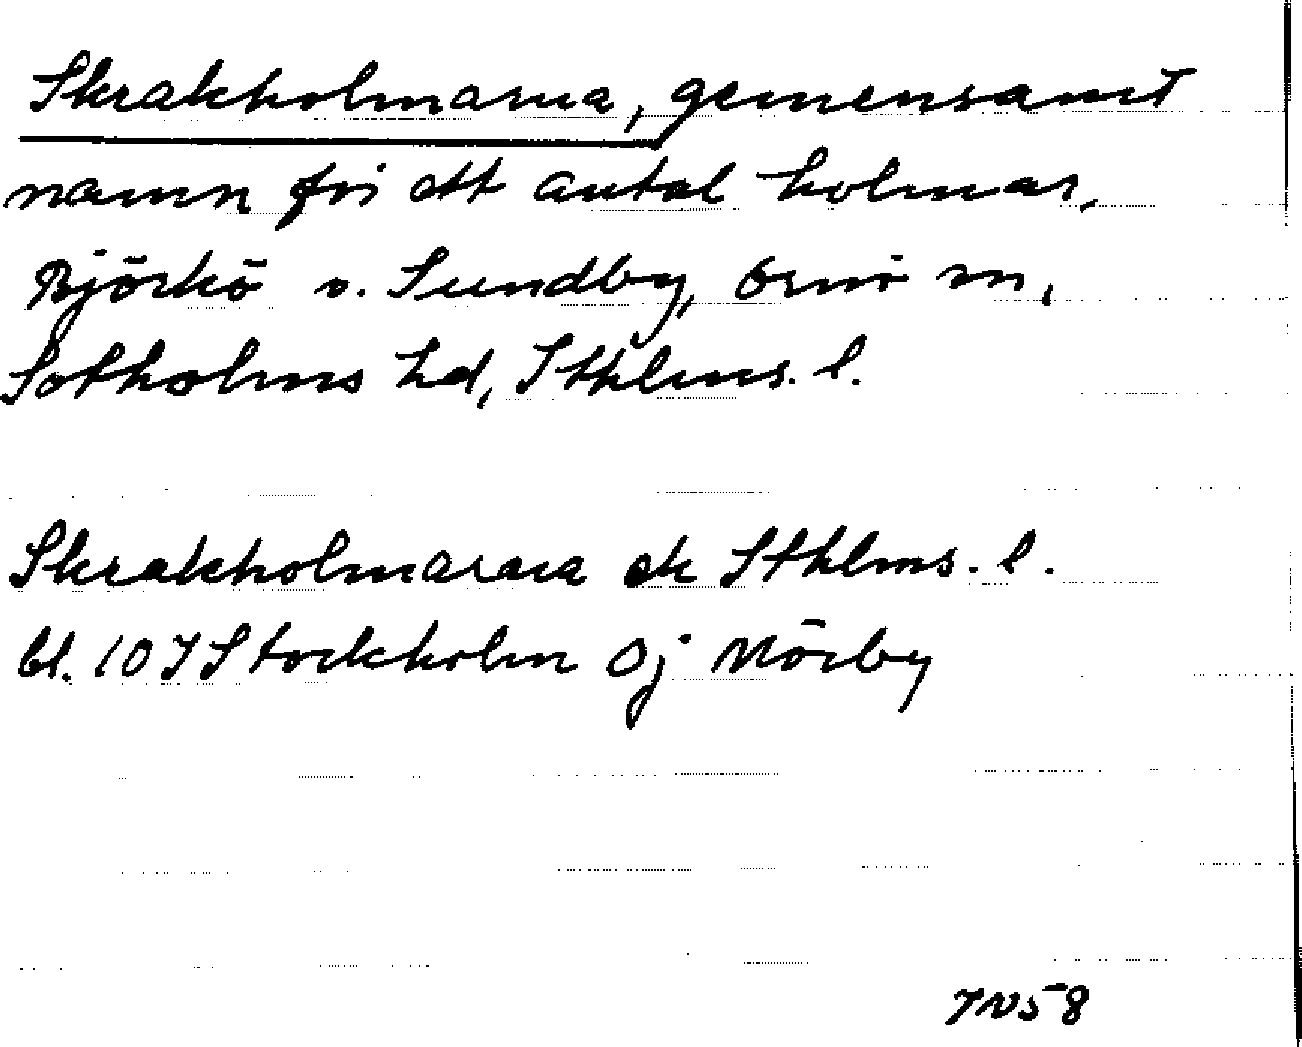 Skrakholmarna, gemensamt
namn för ett antal holmar,
Björkö o. Sundby, Ornö sn,
Sotholms hd, Sthlms. l.
Skrakholmarna ek Sthlms. l.
bl. 10 I Stockholm Öj Mörby